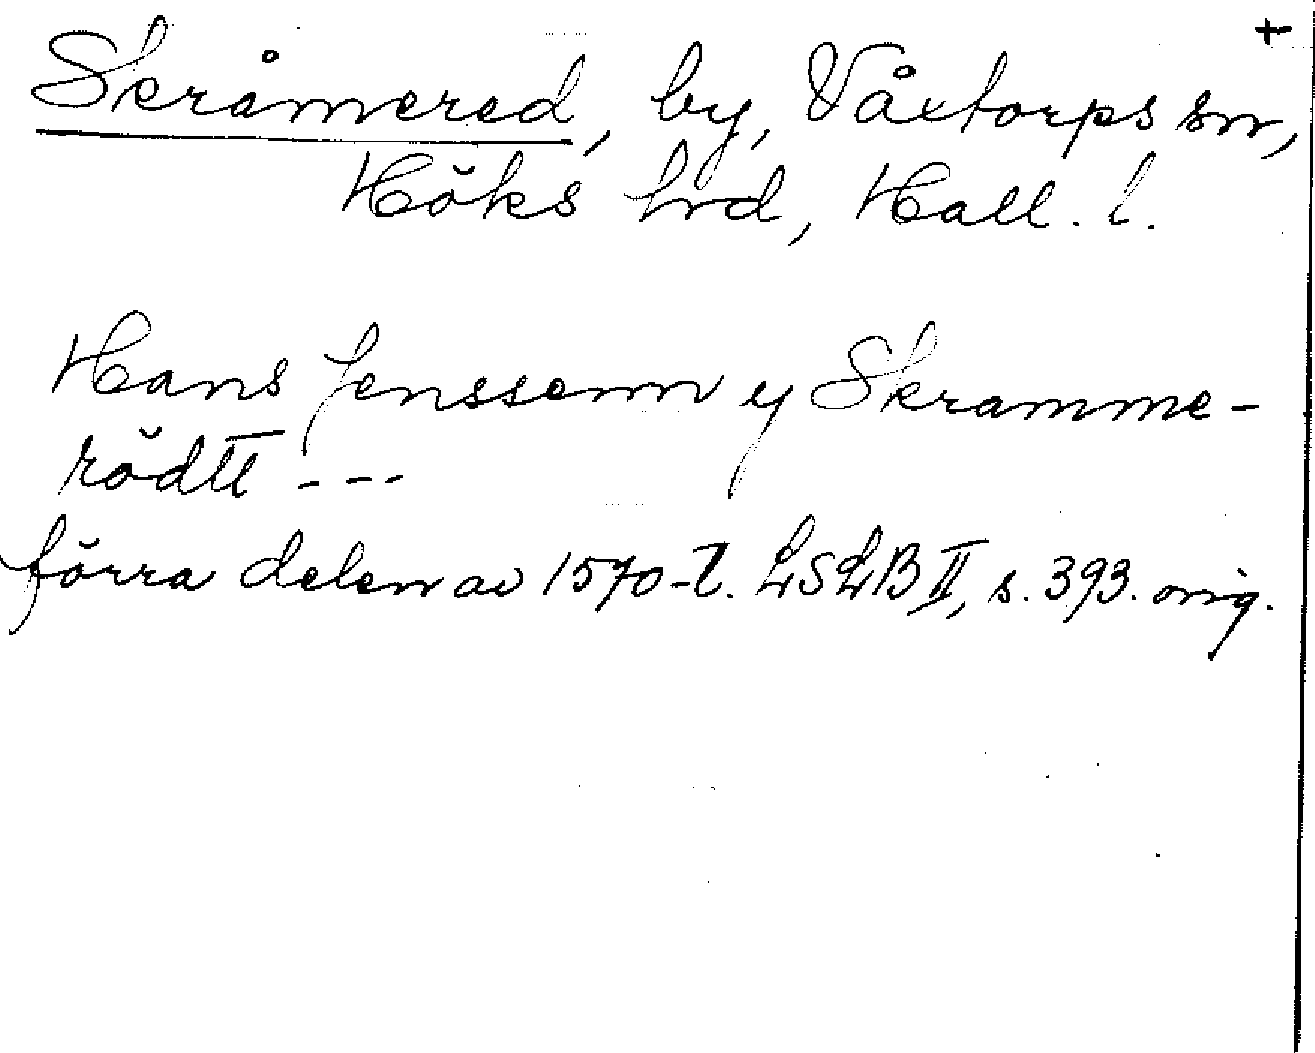 +
Skråmered, by, Våxtorps sn,
Höks hrd, Hall. l.
Hans Jenssenn y Skramme-
rödtt ---
förra delen av 1570-t. LSLB II, s. 393. orig.